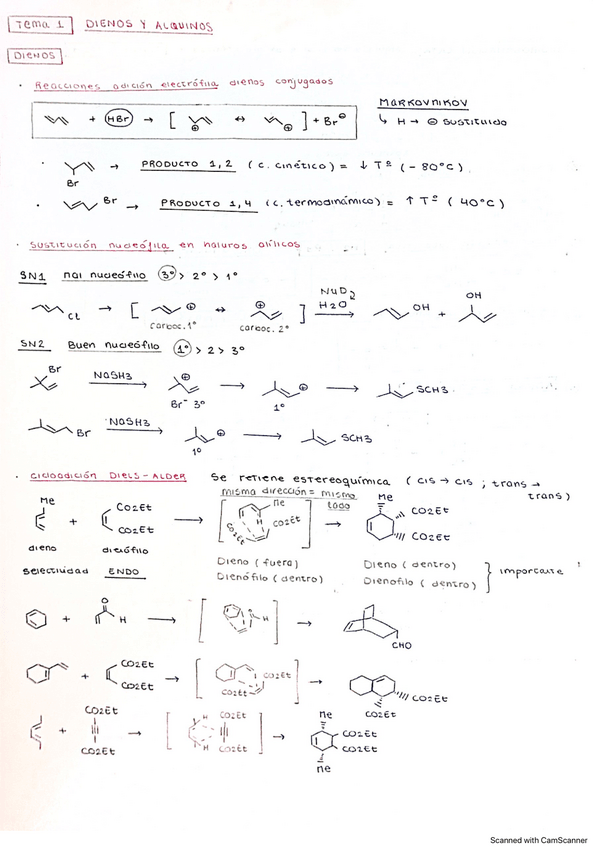 Tema 1 DIENOS Y ALQUINOS
DIENOS
· Reacciones adición electrófila dienos conjugados
+ HBr → [ ⊕ ↔ ⊕ ] + Br⊖
MARKOVNIKOV
↳ H → ⊖ sustituido
· Br → PRODUCTO 1,2 (c. cinético) = ↓ Tª (-80°C)
· Br → PRODUCTO 1,4 (c. termodinámico) = ↑ Tª (40°C)
· Sustitución nucleófila en haluros alílicos
SN1 mal nucleófilo 3º > 2º > 1º
Cl → [ ⊕ ↔ ⊕ ] H2O → OH + OH
carboc. 1º carboc. 2º
SN2 Buen nucleófilo 1º > 2 > 3º
Br NaSH3 → ⊕ → ⊕ → SCH3
Br⁻ 3º 1º
Br NaSH3 → ⊕ → SCH3
1º
· Cicloadición DIELS-ALDER Se retiene estereoquímica (cis → cis ; trans → trans)
misma dirección = mismo lado
Me + CO2Et CO2Et → [ Me H CO2Et CO2Et ] → Me CO2Et CO2Et
dieno dienófilo
Dieno (fuera) Dieno (dentro)
Dienófilo (dentro) Dienofilo (dentro) } importante
selectividad ENDO
+ O H → [ O H ] → CHO
+ CO2Et CO2Et → [ CO2Et CO2Et ] → CO2Et CO2Et
+ CO2Et CO2Et → [ H CO2Et H CO2Et ] → Me CO2Et CO2Et Me
Scanned with CamScanner